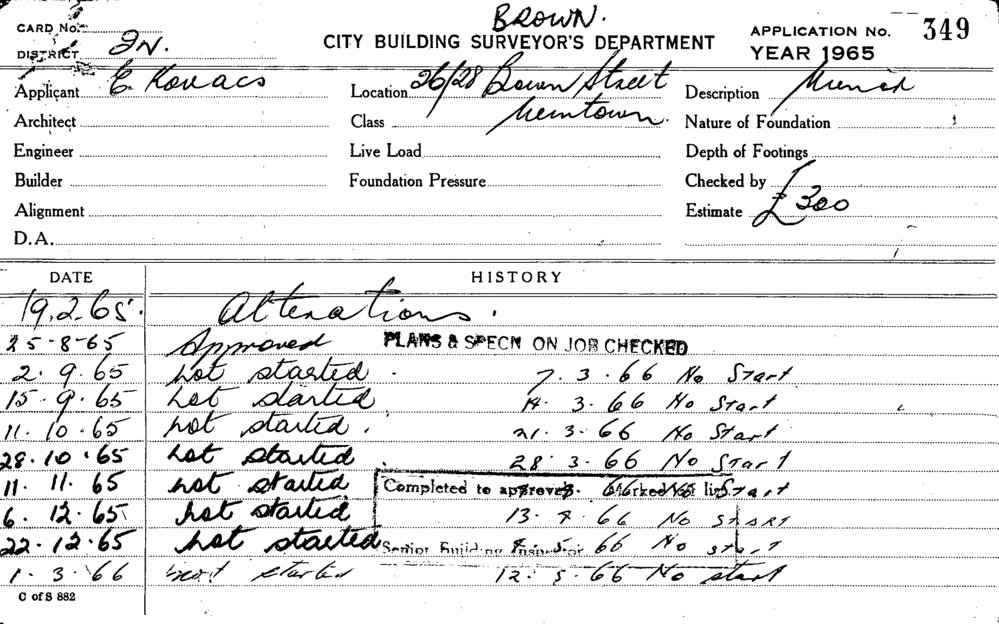 BROWN.
CARD No.
DISTRICT In.
CITY BUILDING SURVEYOR'S DEPARTMENT
APPLICATION No. 349
YEAR 1965
Applicant E. Kovacs
Location 26/28 Brown Street
Description
Architect
Class Newtown.
Nature of Foundation
Engineer
Live Load
Depth of Footings
Builder
Foundation Pressure
Checked by
Alignment
Estimate £300
D.A.
DATE HISTORY
19.2.65. Alterations.
25-8-65 Approved PLANS & SPECN ON JOB CHECKED
2.9.65 not started. 7.3.66 No Start
15.9.65 not started 14.3.66 No Start
11.10.65 not started. 21.3.66 No Start
28.10.65 not started. 28.3.66 No Start
11.11.65 not started Completed to approved Marked off list
6.12.65 not started 13.4.66 No START
22.12.65 not started Senior Building Inspector 66 No start
1.3.66 not started 12.5.66 No start
C of S 882